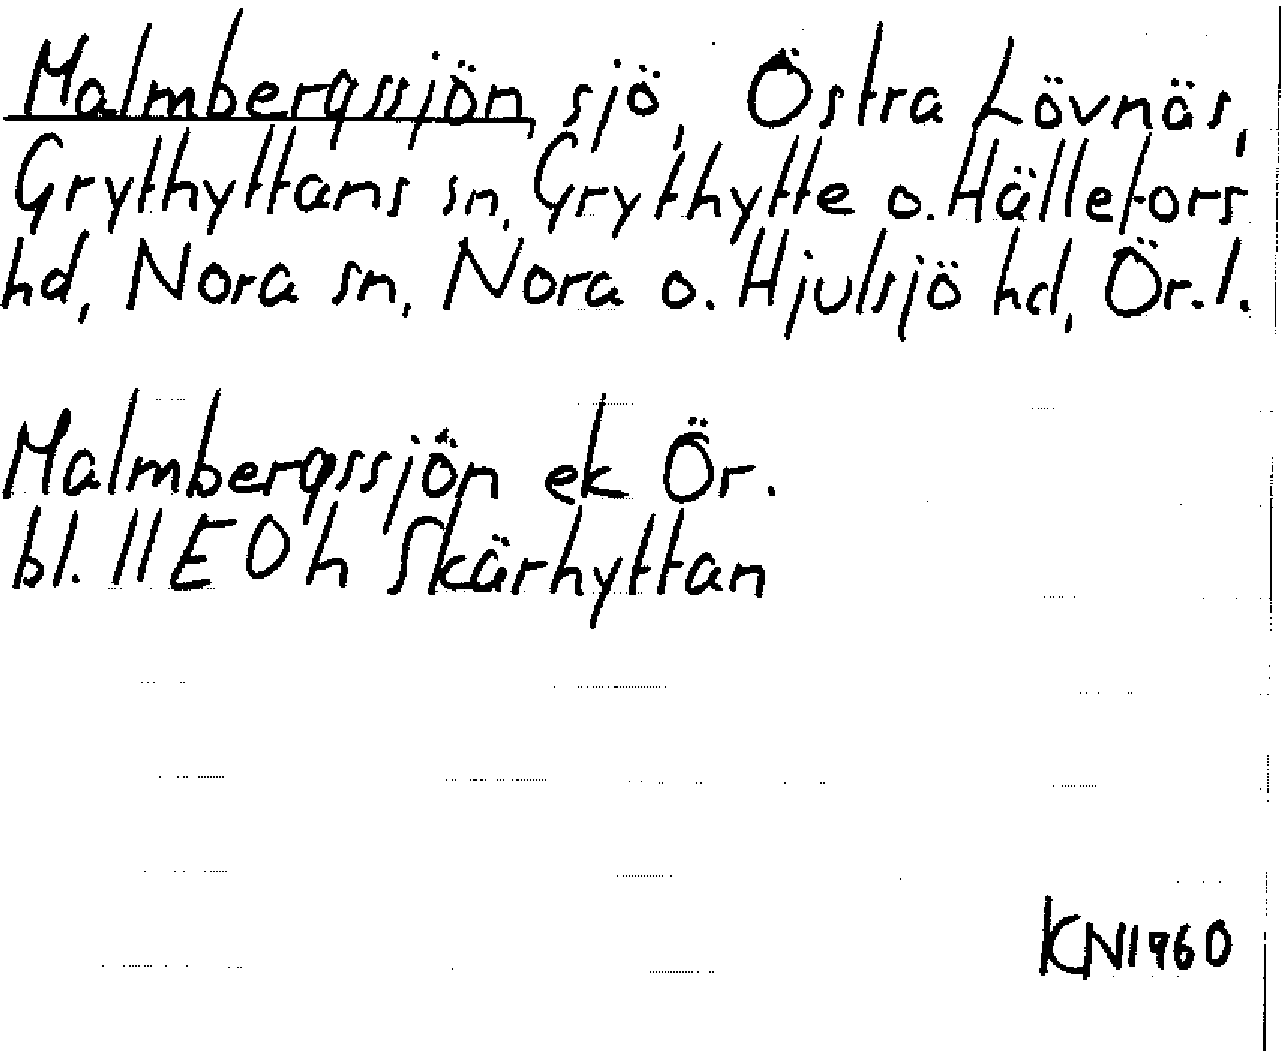 Malmbergssjön, sjö, Östra Lövnäs,
Grythyttans sn, Grythytte o. Hällefors
hd, Nora sn, Nora o. Hjulsjö hd, Ör.l.
Malmbergssjön ek Ör.
bl. 11E0h Skärhyttan
KN1960